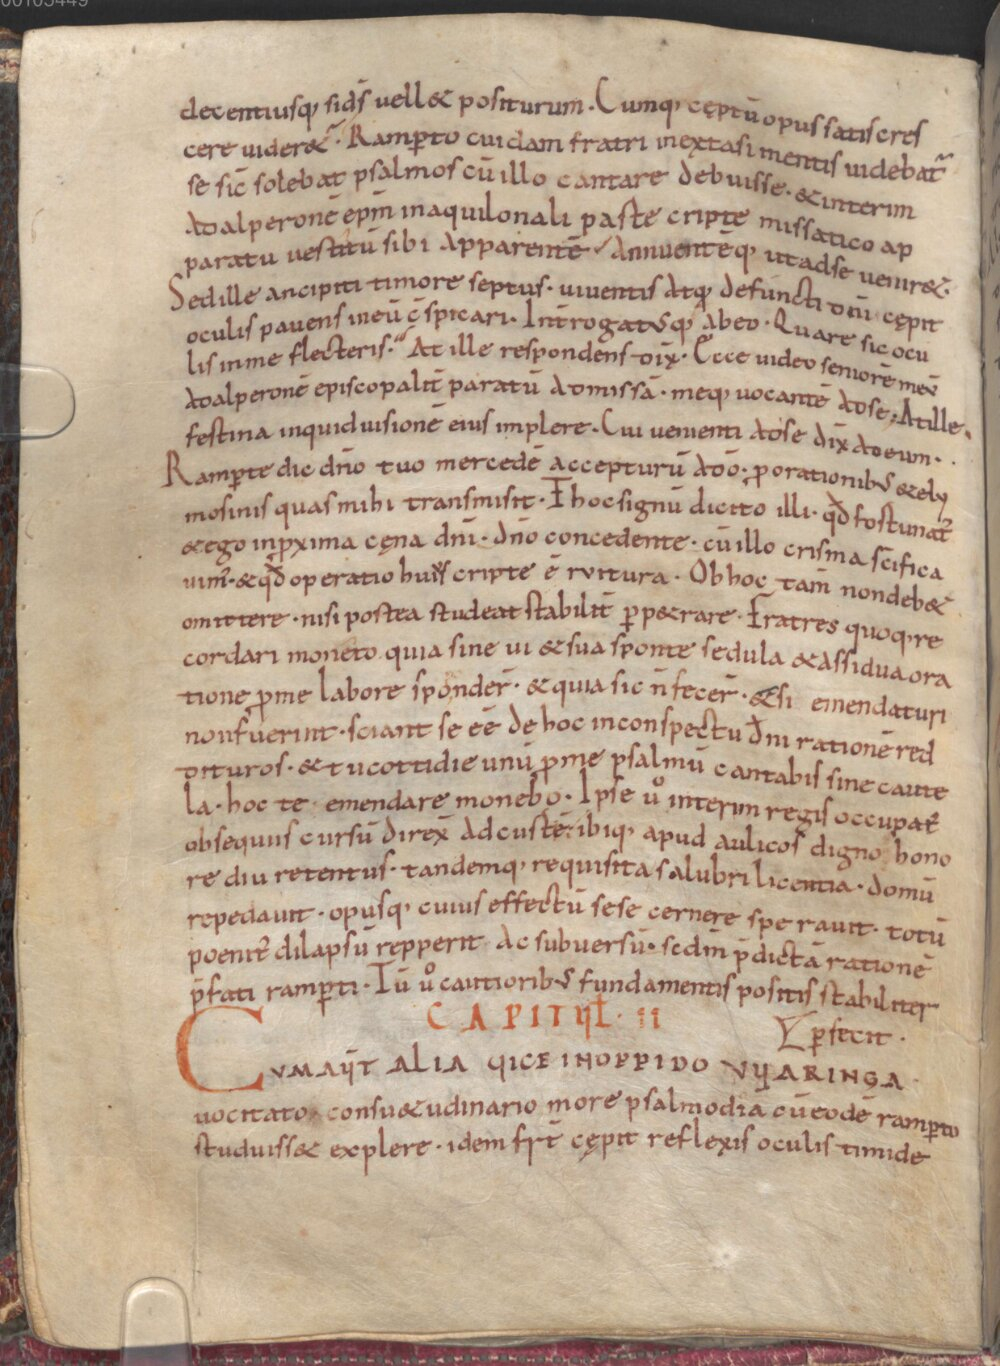 decentiusq; sidś uell& positurum. Cumq; cęptū opus satis cres
cere uider&̃. Ramꝑto cuidam fratri in extasi mentis uidebat̃
se sic̄ solebat psalmos cū illo cantare debuisse. & interim
Adalperonē ep̄m in aquilonali parte cripte missatico ap
paratu uestitū sibi apparentē. Annuentēq; ut ad se uenir&.
Sed ille ancipiti timore septus. uiuentis atq; defuncti dn̄i cępit
oculis pauens in eū c̄spicari. Introgatusq; ab eo. Quare sic ocu
lis in me flecteris. At ille respondens dix̄. Ecce uideo seniorē meū
Adalperonē episcopalit̄ paratū ad missā. meq; uocantē ad se. At ille.
festina inquid uisionē eius implere. Cui uenienti ad se dix̄ ad eum.
Ramꝑte dic dn̄o tuo mercedē accepturū a dō. ꝓ orationib; & ely
mosinis quas mihi transmisit. & hoc signū dicito illi. qđ fortunat̃
& ego in ꝓxima cęna dn̄i. dn̄o concedente. cū illo crisma sc̄ifica
uim̃. & qđ operatio huiꝰ cripte ē ruitura. Ob hoc tam̄ non deb&
omittere. nisi postea studeat stabilit̄ ꝑp&rare. Fratres quoq; re
cordari moneto quia sine ui & sua sponte sedula & assidua ora
tione ꝓ me labore sponder̄. & quia sic n̄ fecer̄. & si emendaturi
non fuerint. sciant se eē de hoc in conspectu dn̄i rationē red
dituros. & tu cottidie unū ꝓ me psalmū cantabis sine caute
la. hoc te emendare monebo. Ipse uͦ interim regis occupat̃
obsequiis cursū direx̄ ad custē. ibiq; apud aulicos digno hono
re diu retentus. tandemq; requisita salubri licentia. domū
repedauit. opusq; cuius effectū sese cernere sperauit. totū
poenit̃ dilapsū repperit ac subuersū. scdm̄ p̄dictā rationē
p̄fati ramꝑti. Tū uͦ cautiorib; fundamentis positis stabiliter
CAPITUL. II
ꝑfecit.
CUM AUT ALIA UICE IN OPPIDO VUARINGA
uocitato. consu&udinario more psalmodia cū eodē ramꝑto
studuiss& explere. idem frr̄ cępit reflexis oculis timide